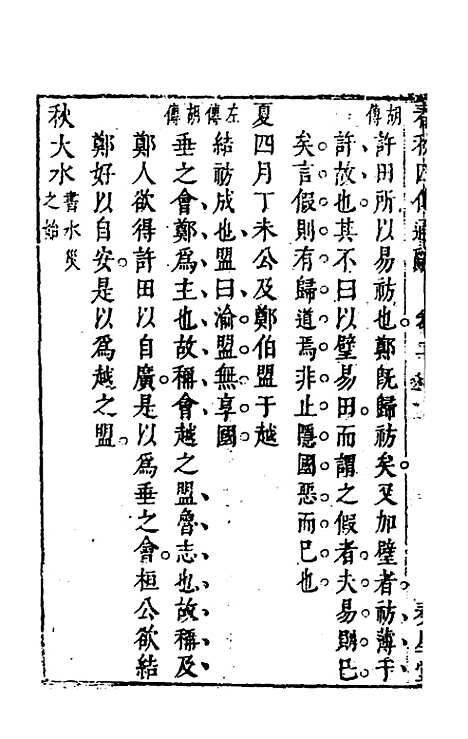 胡傳許田所以易祊也鄭既歸祊矣又加璧者祊薄于
許故也其不曰以璧易田而謂之假者夫易則已
矣言假則有歸道焉非止隱國惡而已也
夏四月丁未公及鄭伯盟于越
左傳結祊成也盟曰渝盟無享國
胡傳垂之會鄭為主也故稱會越之盟魯志也故稱及
鄭人欲得許田以自廣是以為垂之會桓公欲結
鄭好以自安是以為越之盟
秋大水書水災之始